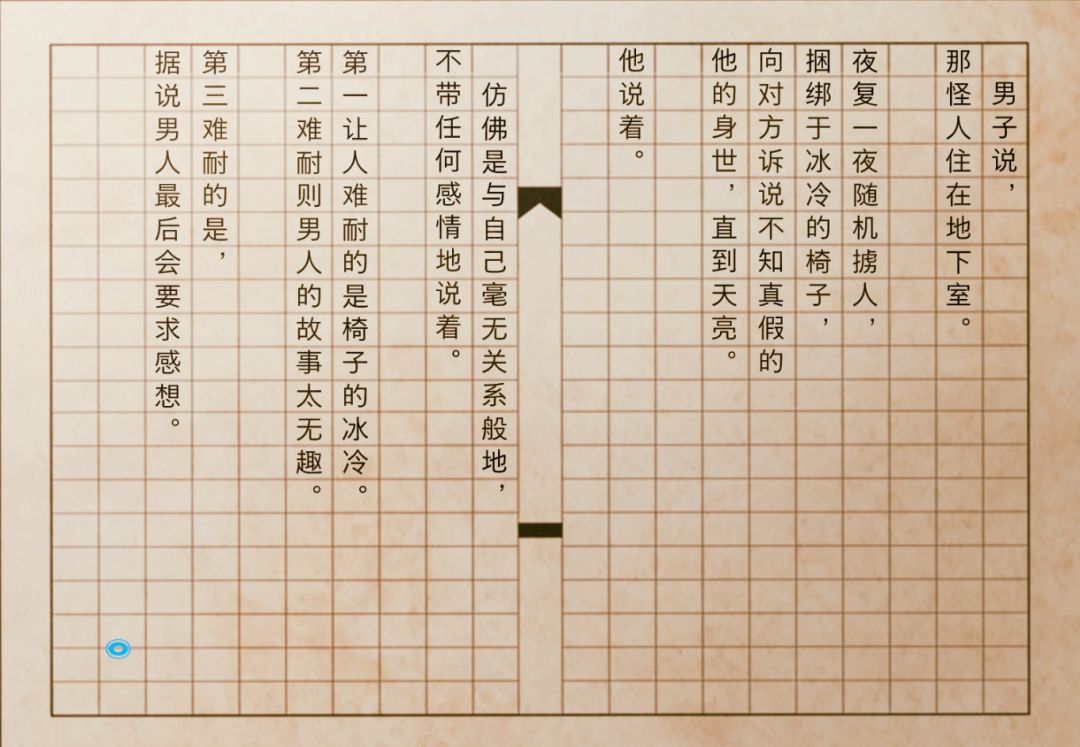 男子说，
那怪人住在地下室。
夜复一夜随机掳人，
捆绑于冰冷的椅子，
向对方诉说不知真假的
他的身世，直到天亮。
他说着。
仿佛是与自己毫无关系般地，
不带任何感情地说着。
第一让人难耐的是椅子的冰冷。
第二难耐则男人的故事太无趣。
第三难耐的是，
据说男人最后会要求感想。